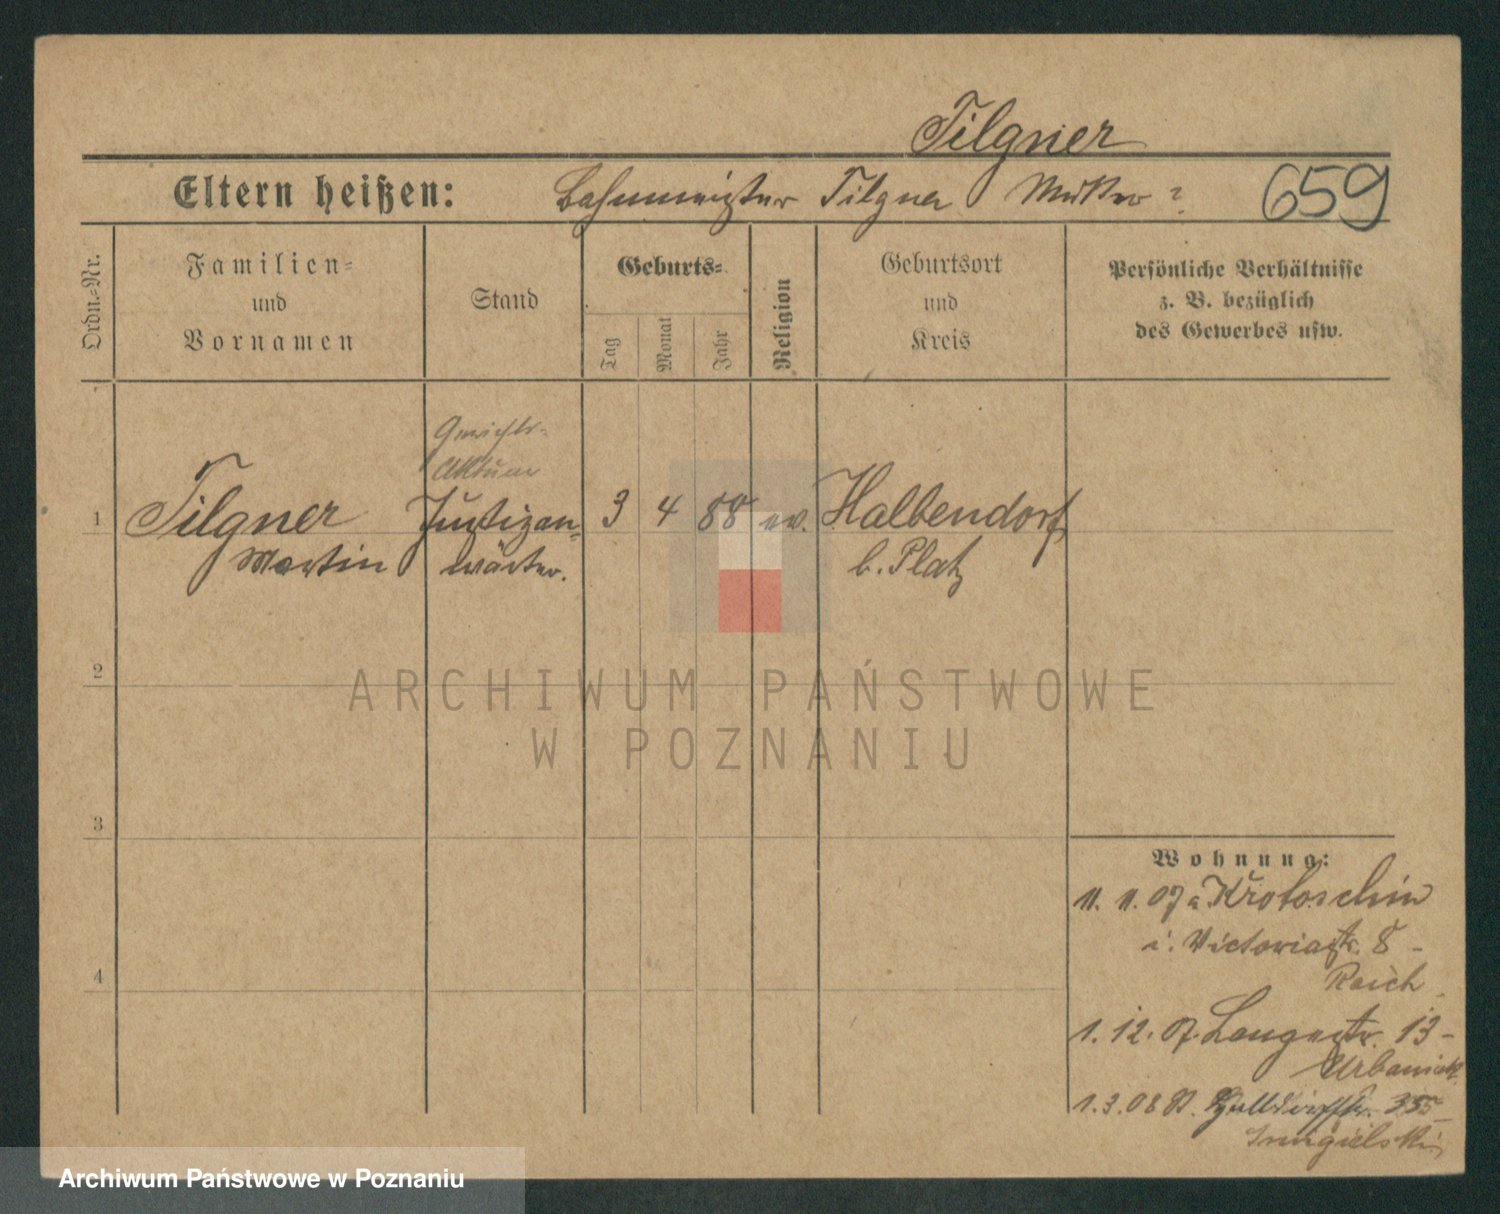 Tilgner
Eltern heißen: Bahnmeister Tilgner Mutter ?
659
Ordn.-Nr.
Familien-
und
Vornamen
Stand
Geburts-
Tag
Monat
Jahr
Religion
Geburtsort
und
Kreis
Persönliche Verhältnisse
z. B. bezüglich
des Gewerbes usw.
Gerichts-
Aktuar
1 Tilgner Justizan- 3 4 88 ev. Halbendorf
Martin wärter. b. Platz
2
ARCHIWUM PAŃSTWOWE
W POZNANIU
3
4
Wohnung:
11. 11. 07 a Krotoschin
i. Victoriastr. 8 -
Raich
1. 12. 07. Langestr. 13 -
Urbaniak
1. 3. 08 St.
Smigielski
Archiwum Państwowe w Poznaniu